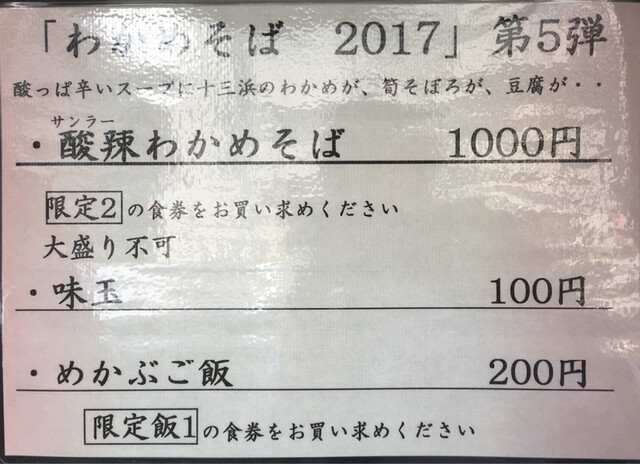 「わかめそば 2017」第5弾
酸っぱ辛いスープに十三浜のわかめが、筍そぼろが、豆腐が・・
サンラー
・酸辣わかめそば 1000円
限定2の食券をお買い求めください
大盛り不可
・味玉 100円
・めかぶご飯 200円
限定飯1の食券をお買い求めください